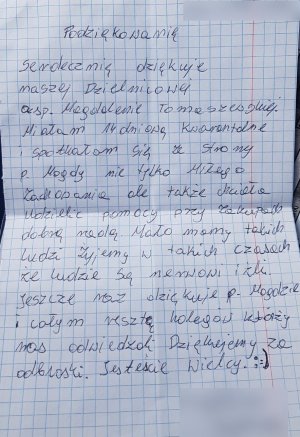 Podziękowanią
Serdecznię dziękuje
naszej Dzielnicową
asp. Magdalenie Tomaszewskiej.
Miałam 14 dniową kwarantanne
i spotkałam się ze strony
p. Magdy nie tylko Miłego
zachowania ale także chciała
udzielić pomocy przy zakupach
dobrą radą Mało mamy takich
ludzi żyjemy w takich czasach
że ludzie są nerwowi i źli.
Jeszcze raz dziękuje p. Magdzie
i całym resztę kolegów którzy
nas odwiedzali Dziękujemy za
odblaski. Jesteście Wielcy. :=)